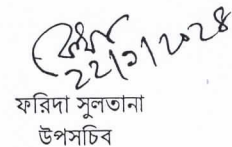 22/1/2024
ফরিদা সুলতানা
উপসচিব